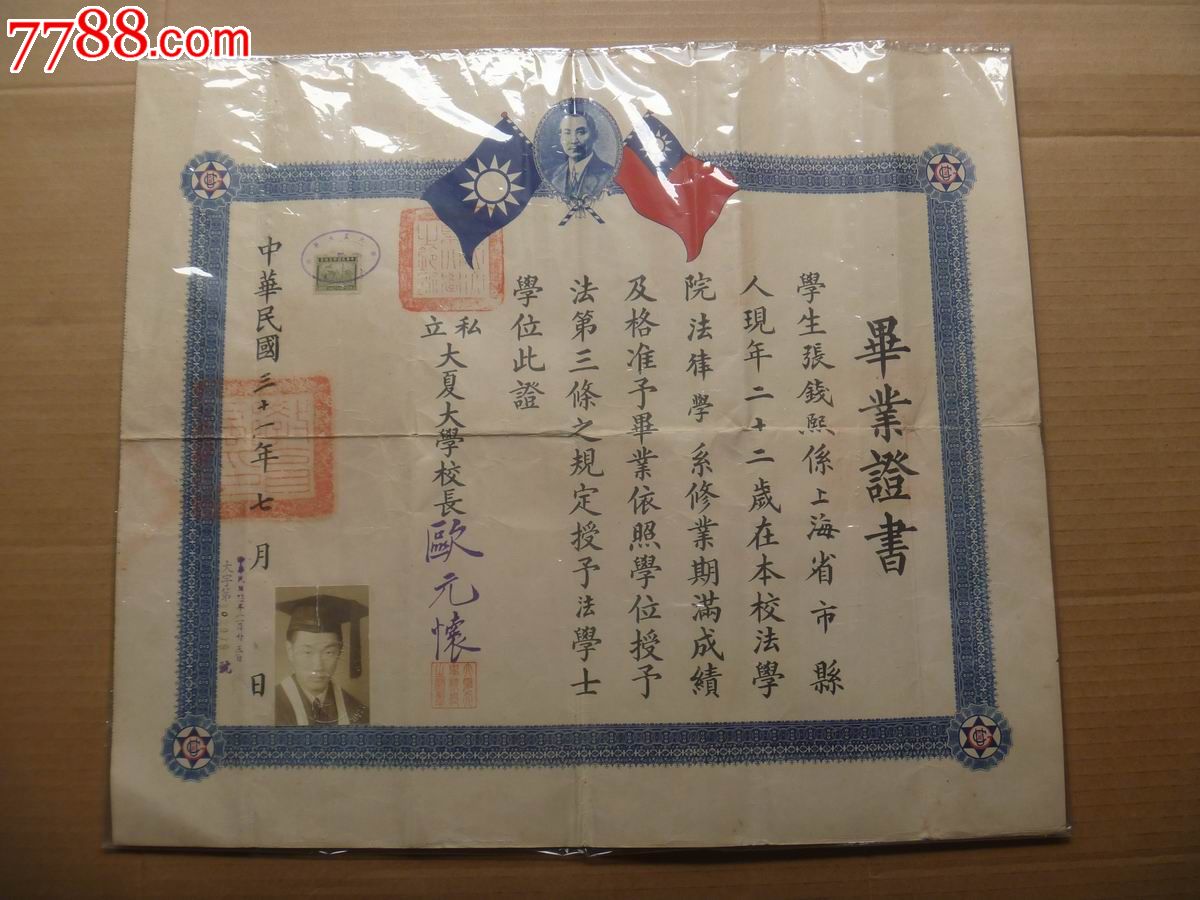 7788.com
畢業證書
學生張錢熙係上海省市縣
人現年二十二歲在本校法學
院法律學系修業期滿成績
及格准予畢業依照學位授予
法第三條之規定授予法學士
學位此證
私立
大夏大學校長歐元懷
中華民國三十一年七月日
大字第號